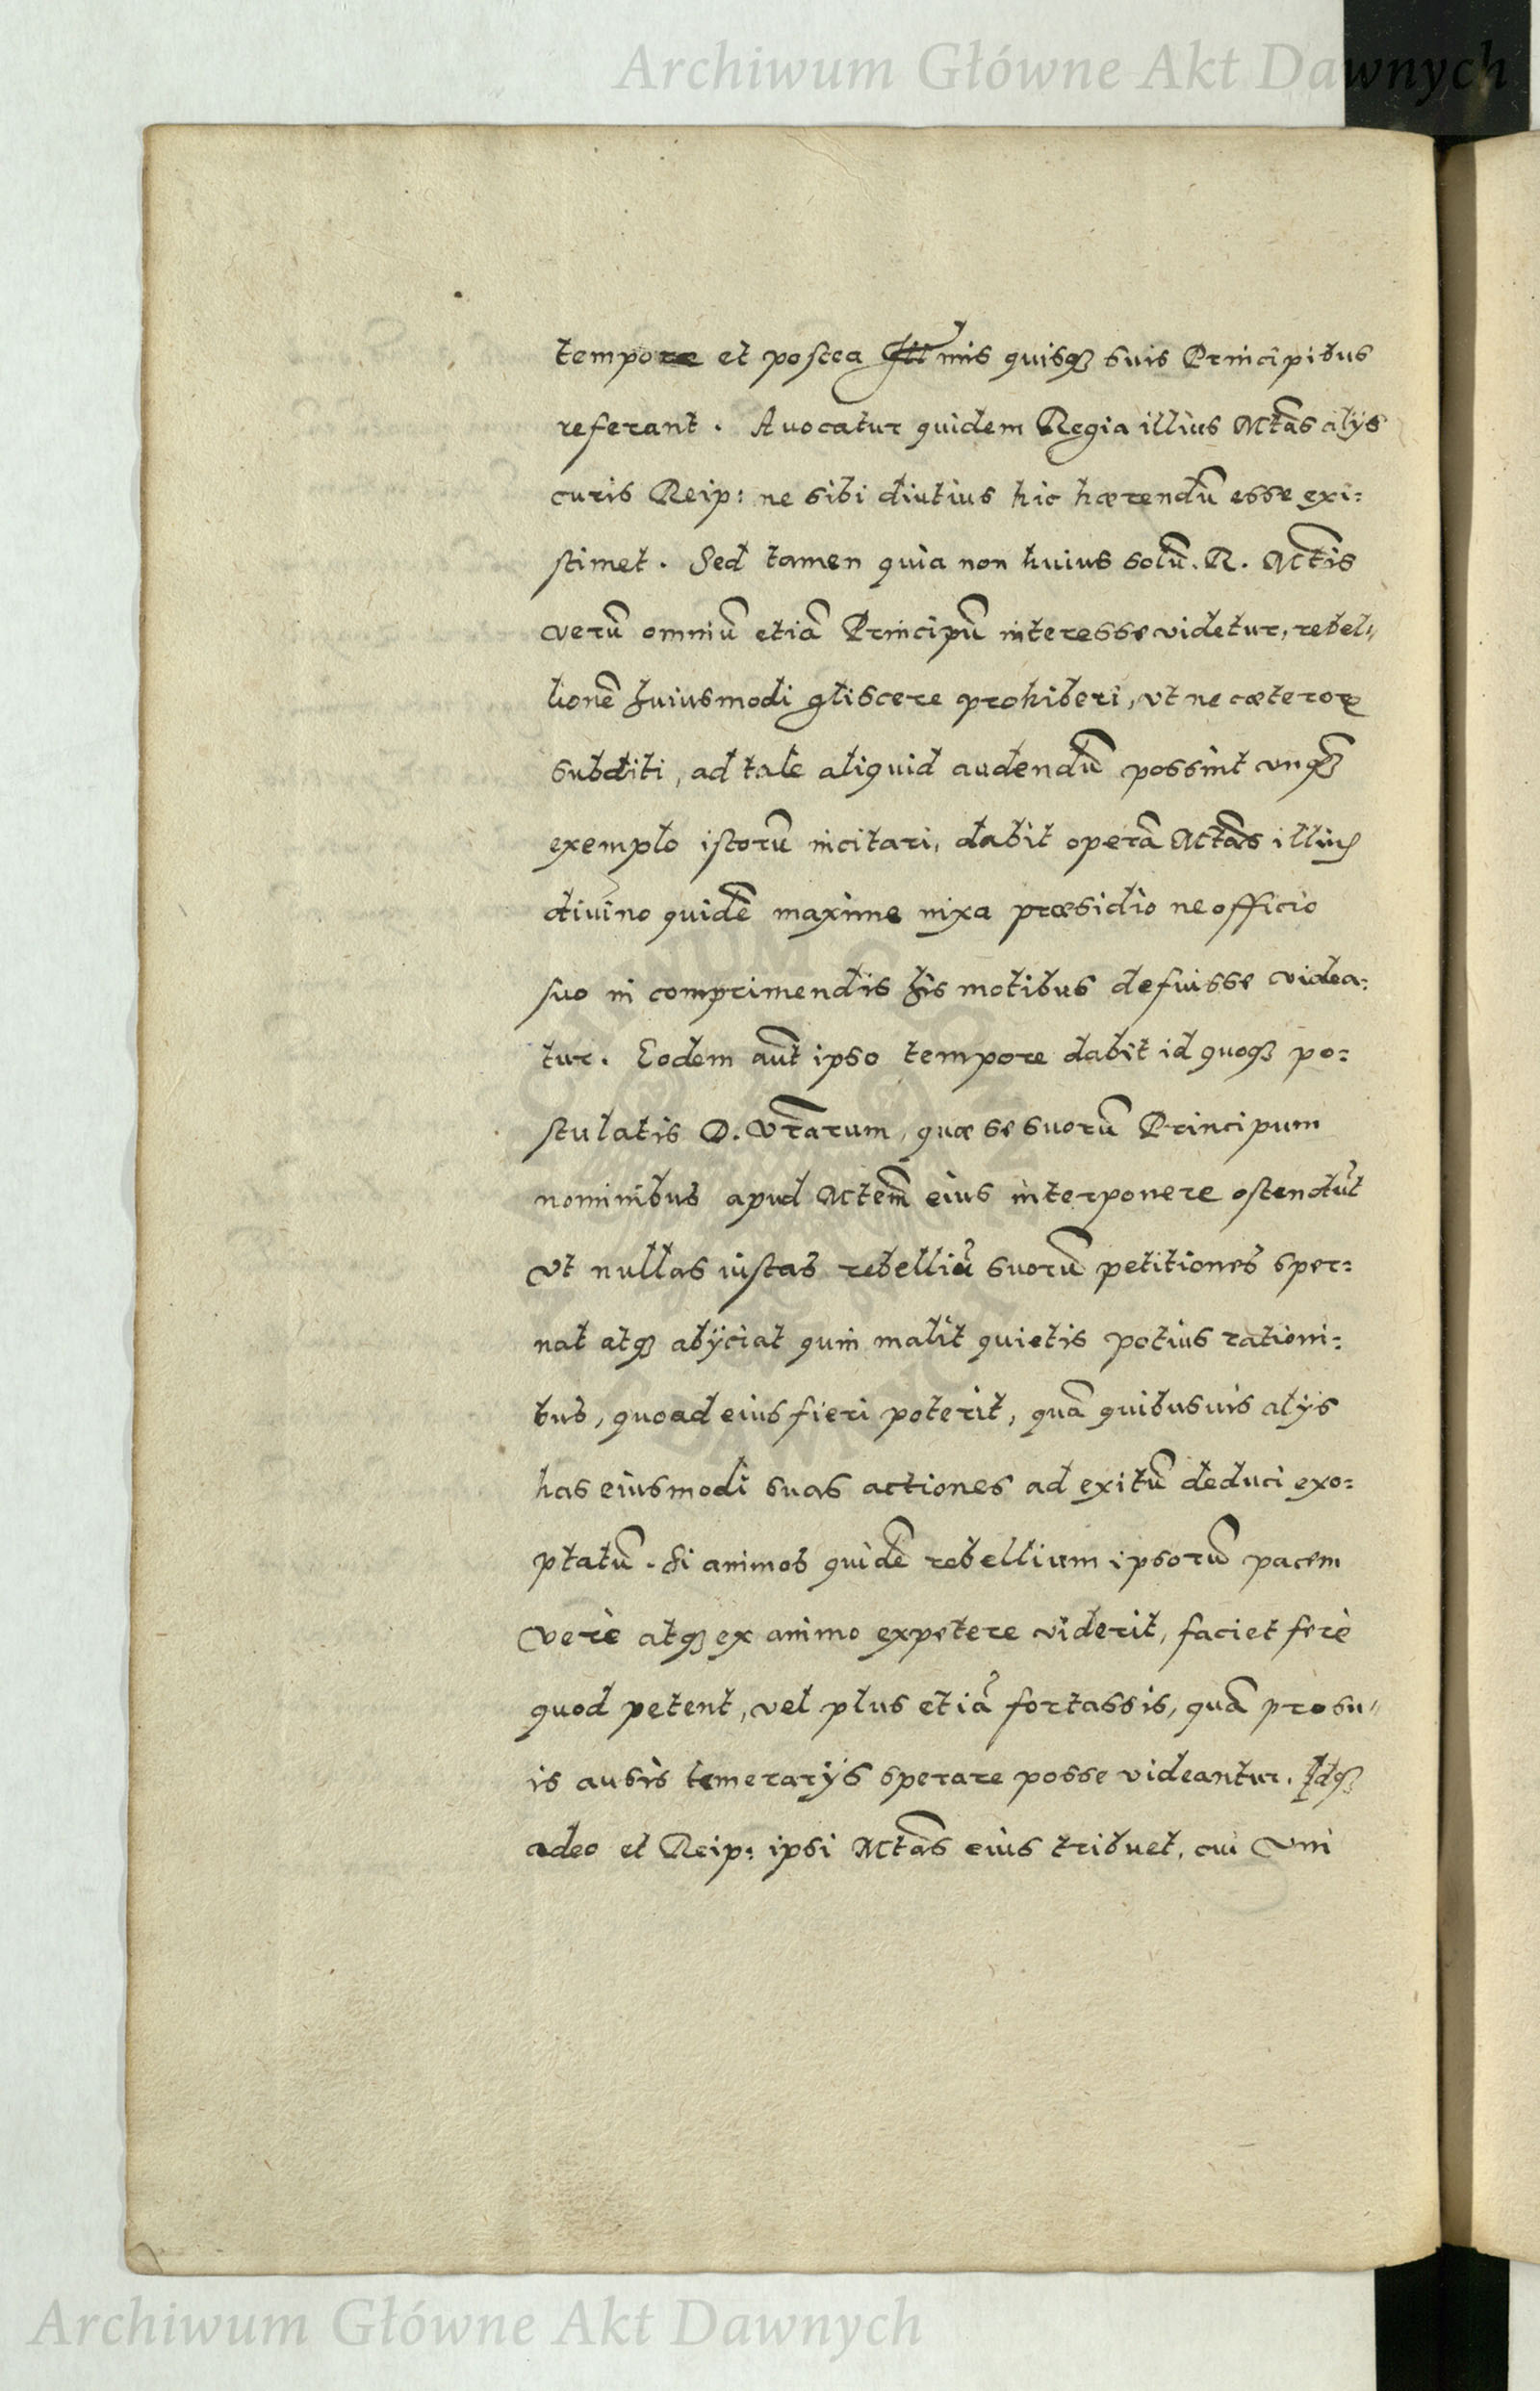 Archiwum Główne Akt Dawnych
tempore et postea Ill mis quisq₃ suis Principibus
referant. Auocatur quidem Regia illius Mtas alijs
curis Reip: ne sibi diutius hic hærendũ esse exi:
stimet. Sed tamen quia non huius solũ. R. Mtis
verũ omniũ etiã Principũ interesse videtur, rebel„
lionẽ huiusmodi gliscere prohiberi, vt ne cæteroꝝ
subditi, ad tale aliquid audendũ possint vnq₃
exemplo istorũ incitari, dabit operã Mtas illius
diuino quidẽ maxime nixa præsidio ne officio
suo in comprimendis his motibus defuisse videa:
tur. Eodem aũt ipso tempore dabit id quoq₃ po:
stulatis D. Vrarum, quæ se suorũ Principum
nominibus apud Mtem eius interponere ostendũt
Vt nullas iustas rebelliũ suorũ petitiones sper:
nat atq₃ abijciat quin malit quietis potius rationi:
bus, quoad eius fieri poterit, quã quibusuis alijs
has eiusmodi suas actiones ad exitũ deduci exo:
ptatũ. Si animos quidẽ rebellium ipsorũ pacem
verè atq₃ ex animo expetere viderit, faciet ferè
quod petent, vel plus etiã fortassis, quã pro su„
is ausis temerarijs sperare posse videantur. Idq₃
adeo et Reip: ipsi Mtas eius tribuet, cui vni
Archiwum Główne Akt Dawnych